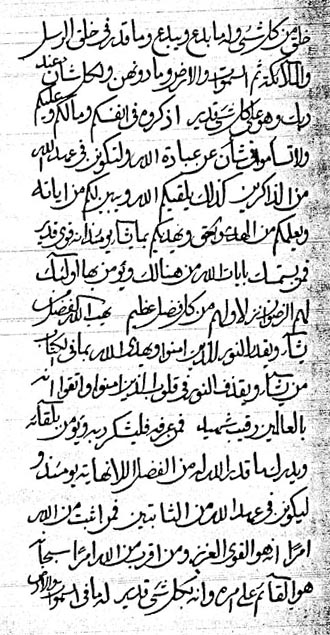 خلق من كل شيء وله ما بلغ ويبلغ وما قدر في خلق الرسل
والملائكة ثم السموات والارض وما دونهن ولكل شان عند
ربك وهو على كل شيء قدير اذكروه في انفسكم وما لكم وعليكم
ولا تساموا في شان عن عبادة الله ولتكونن في عهد الله
من الذاكرين كذلك يلقيكم الله ويبين لكم من اياته
ويعلمكم من الهدى والحق ويهديكم بما يشاء انه قوي قدير
فمن يتمسك بايات الله من هنالك ويؤمن بها اولئك
لهم الرضوان من لا وله من كل فضل عظيم يهب الله فضل
يشاء ويقذف النور الذين امنوا ويهدي الله بما في الكتاب
من يشاء ويقذف النور في قلوب الذين امنوا واتقوا انه
بالعالمين رقيب شهيد فمن عرفه فليشكر ربه ويؤمن بلقائه
ويدرك ما قدر الله له من الفضل اللانهاية يومئذ و
ليكونن في عهد الله من الثابتين فمن اثبت من الله
امرا انه هو القوي العزيز ومن اقرب من الله امرا سبحانه
هو القائم على امره وانه بكل شيء قدير له ما في السموات والارض